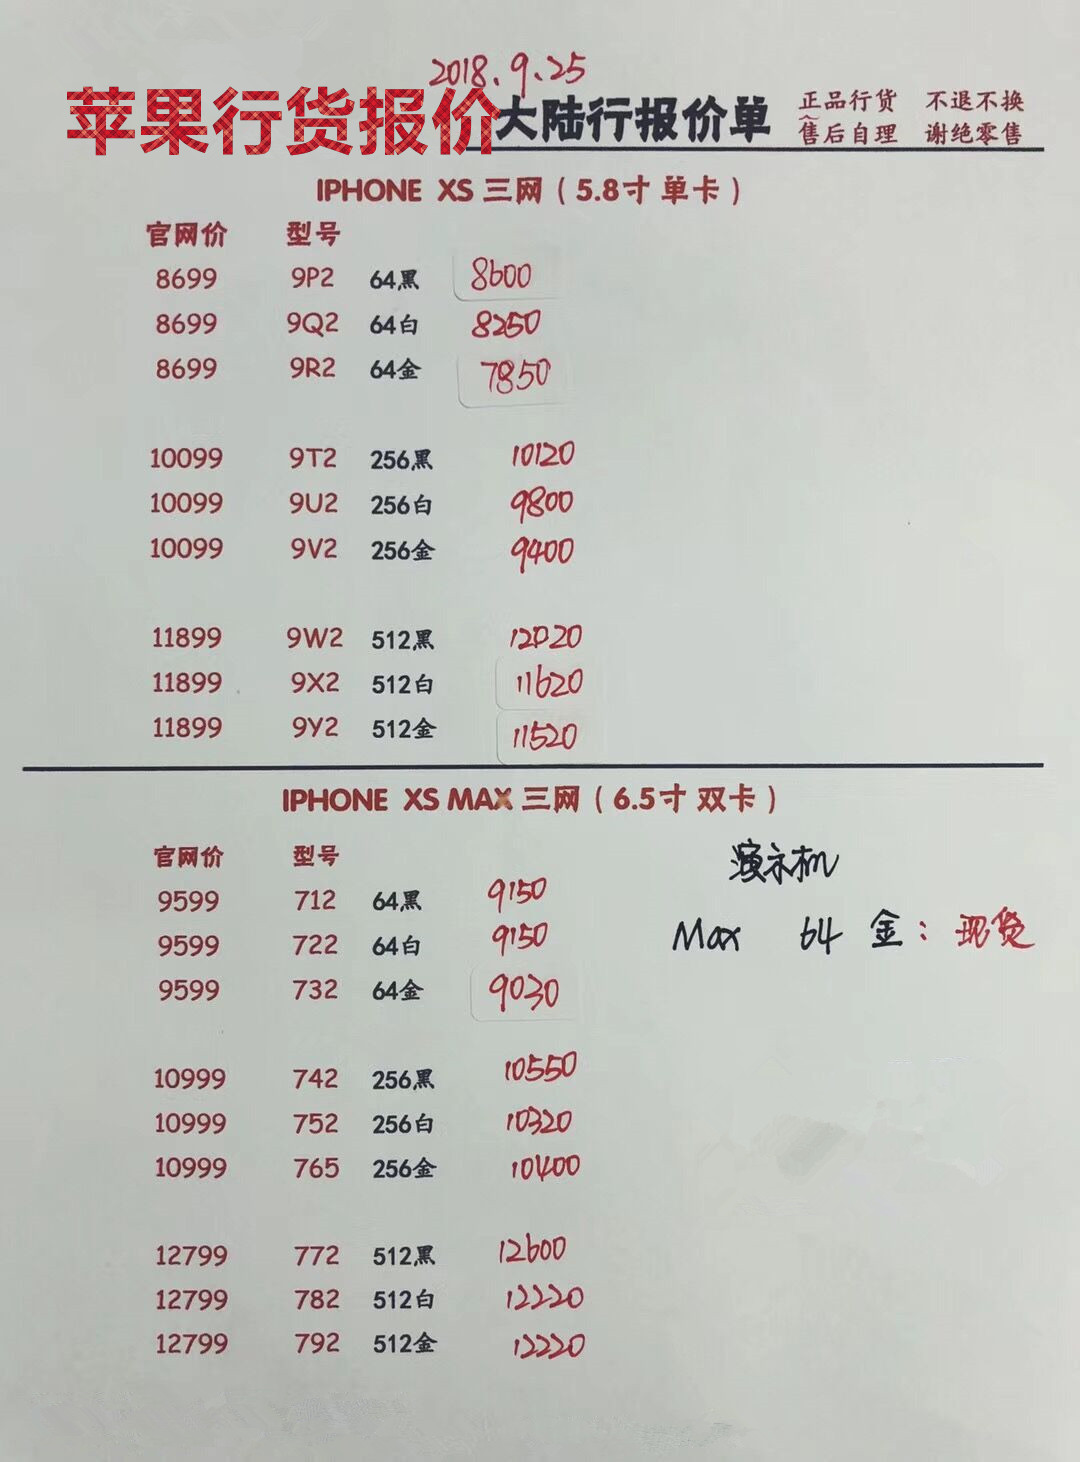 2018.9.25
苹果行货报价大陆行报价单
正品行货 不退不换
售后自理 谢绝零售
IPHONE XS 三网（5.8寸 单卡）
官网价 型号
8699 9P2 64黑 8600
8699 9Q2 64白 8250
8699 9R2 64金 7850
10099 9T2 256黑 10120
10099 9U2 256白 9800
10099 9V2 256金 9400
11899 9W2 512黑 12020
11899 9X2 512白 11620
11899 9Y2 512金 11520
IPHONE XS MAX 三网（6.5寸 双卡）
官网价 型号 演示机
9599 712 64黑 9150
9599 722 64白 9150 Max 64 金：现货
9599 732 64金 9030
10999 742 256黑 10550
10999 752 256白 10320
10999 765 256金 10400
12799 772 512黑 12600
12799 782 512白 12220
12799 792 512金 12220